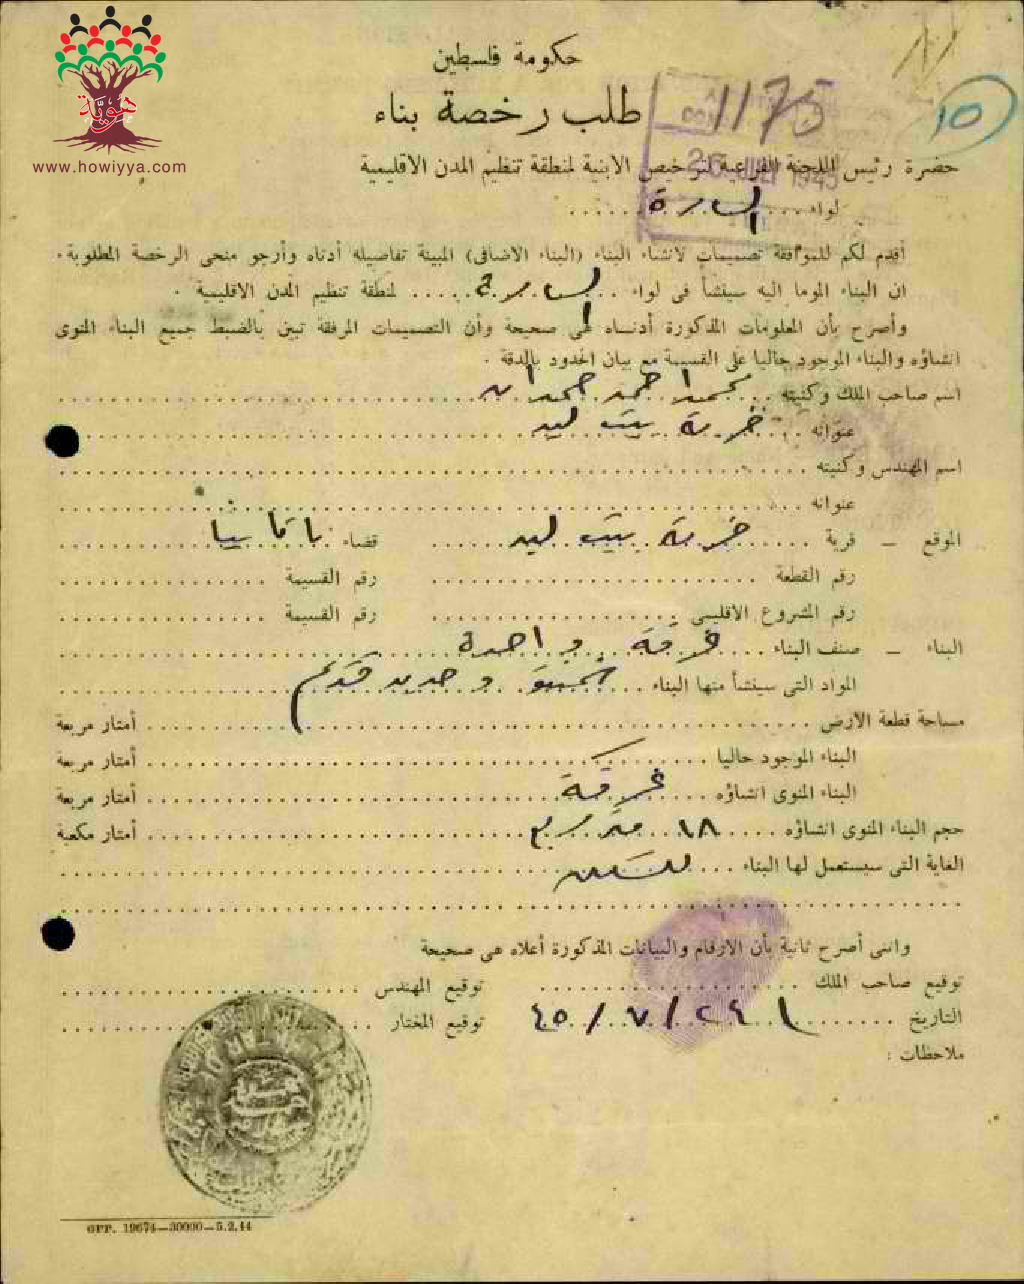 هوية
www.howiyya.com
حكومة فلسطين
طلب رخصة بناء
1175
26 JUL 1945
١٥
حضرة رئيس اللجنة الفرعية لترخيص الابنية لمنطقة تنظيم المدن الاقليمية
لواء السامرة
أقدم لكم للموافقة تصميمات لانشاء البناء (البناء الاضافى) المبينة تفاصيله أدناه وأرجو منحى الرخصة المطلوبة.
ان البناء الموما اليه سينشأ فى لواء السامرة لمنطقة تنظيم المدن الاقليمية.
وأصرح بأن المعلومات المذكورة أدناه هى صحيحة وأن التصميمات المرفقة تبين بالضبط جميع البناء المنوى
انشاؤه والبناء الموجود حاليا على القسيمة مع بيان الحدود بالدقة.
اسم صاحب الملك وكنيته محمد احمد حمدان
عنوانه خربة بيت ليد
اسم المهندس وكنيته
عنوانه
الموقع – قرية خربة بيت ليد قضاء
رقم القطعة رقم القسيمة
رقم المشروع الاقليمى رقم القسيمة
البناء – صنف البناء غرفة واحدة
المواد التى سينشأ منها البناء وحديد قديم
مساحة قطعة الارض أمتار مربعة
البناء الموجود حاليا أمتار مربعة
البناء المنوى انشاؤه غرفة أمتار مربعة
حجم البناء المنوى انشاؤه ١٨ متر أمتار مكعبة
الغاية التى سيستعمل لها البناء للسكن
وانى أصرح ثانية بأن الارقام والبيانات المذكورة أعلاه هى صحيحة
توقيع صاحب الملك توقيع المهندس
التاريخ ٢٤/٧/٤٥ توقيع المختار
ملاحظات :
GPP. 19674—30000—5.2.44